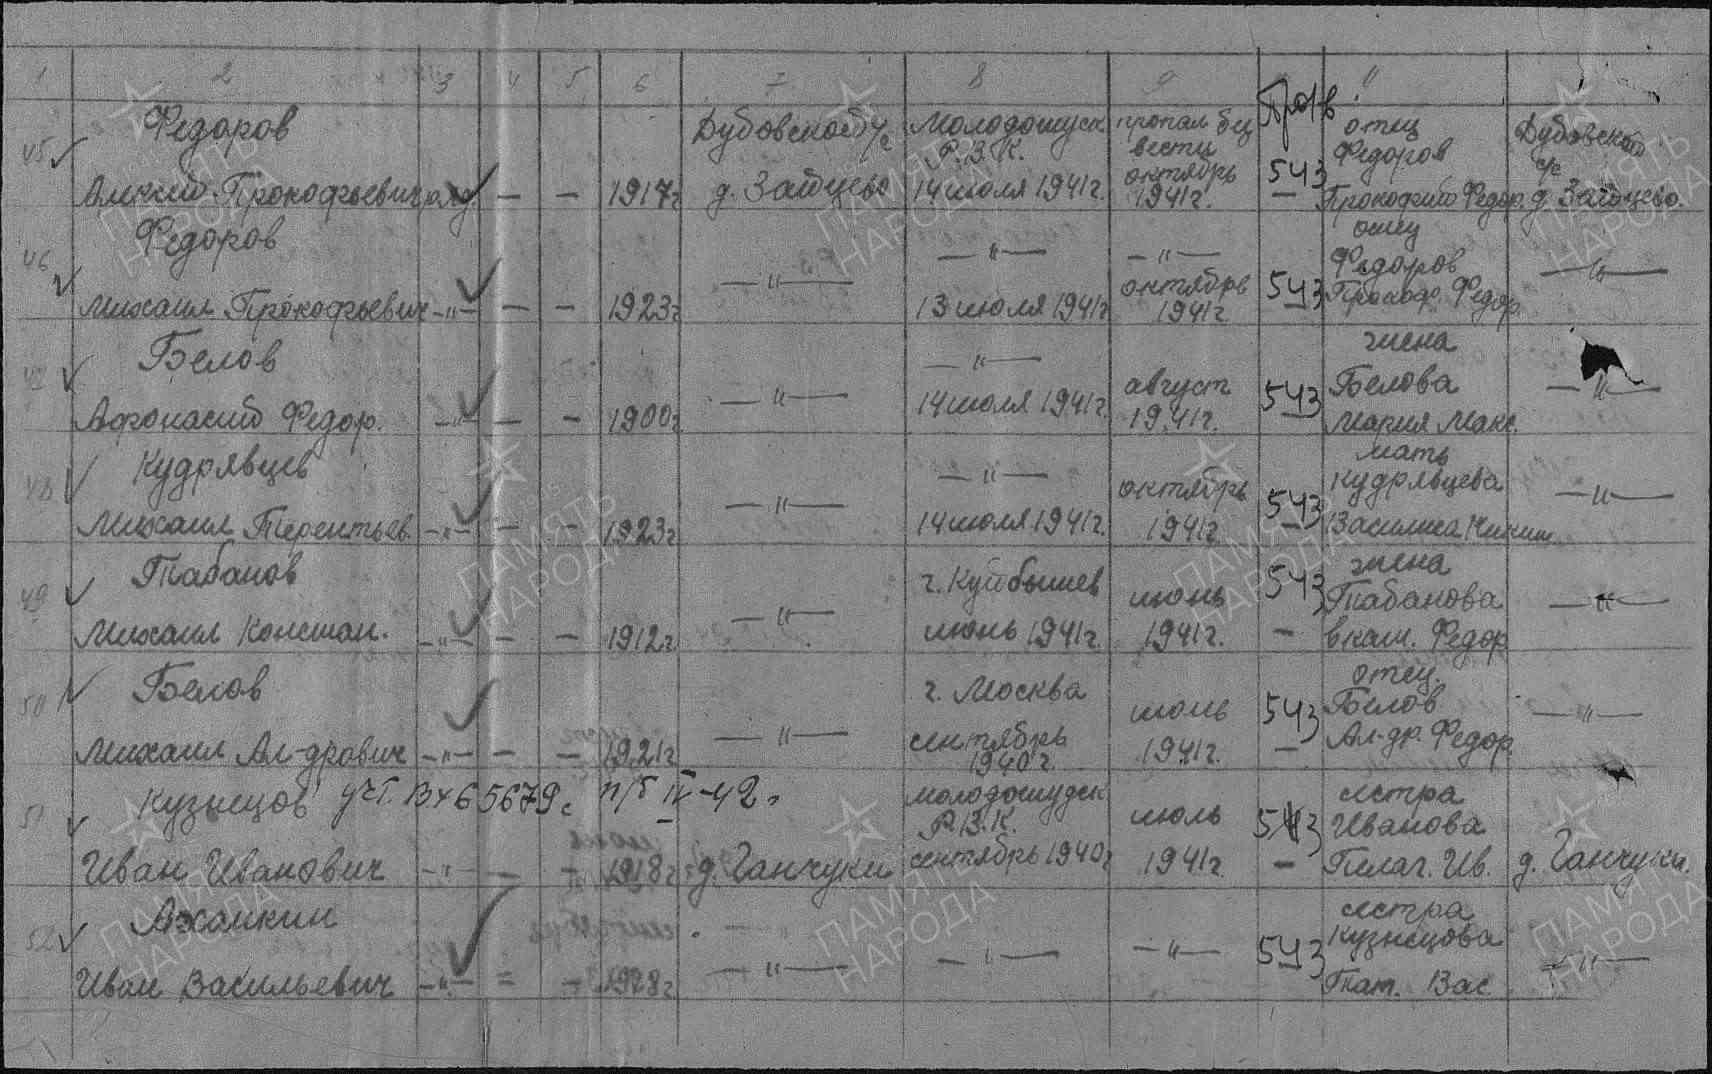 1 2 3 4 5 6 7 8 9 11
45 Федоров Дубовской с/с Молодотуск. пропал без Пр/в отец Дубовской
Р.В.К. вести Федоров с/с
Алексей Прокофьевич ряд. — — 1917г д. Зайцево 14 июля 1941г. октябрь 1941г. 543 Прокофий Федор. д. Зайцево.
46 Федоров —"— —"— —"— отец Федоров —"—
Михаил Прокофьевич —"— — — 1923г 13 июля 1941г октябрь 1941г 543 Прокоф. Федор.
47 Белов —"— —"— август жена Белова —"—
Афонасий Федор. —"— — — 1900г. 14 июля 1941г. 1941г. 543 Мария Макс.
48 Кудрявцев —"— —"— октябрь мать Кудрявцева —"—
Михаил Терентьев. —"— — — 1923г 14 июля 1941г. 1941г. 543 Василиса Никит.
49 Табанов —"— г. Куйбышев июнь 543 жена Табанова —"—
Михаил Констан. —"— — — 1912г. июнь 1941г. 1941г. — Федор
50 Белов —"— г. Москва июнь 543 отец. Белов —"—
Михаил Ал-дрович —"— — — 1921г сентябрь 1940г. 1941г. — Ал-др. Федор.
51 Кузнецов учт. Вх 65679с п/б IV-42г Молодотудск июль 543 сестра Иванова
Р.В.К.
Иван Иванович —"— — — 1918г д. Ганчуки сентябрь 1940г 1941г. — Пелаг. Ив. д. Ганчуки.
52 —"— —"— —"— 543 сестра Кузнецова —"—
Иван Васильевич —"— = — Вас.
ПАМЯТЬ НАРОДА
ПАМЯТЬ НАРОДА
ПАМЯТЬ НАРОДА
ПАМЯТЬ НАРОДА
ПАМЯТЬ НАРОДА
ПАМЯТЬ НАРОДА
ПАМЯТЬ НАРОДА
ПАМЯТЬ НАРОДА